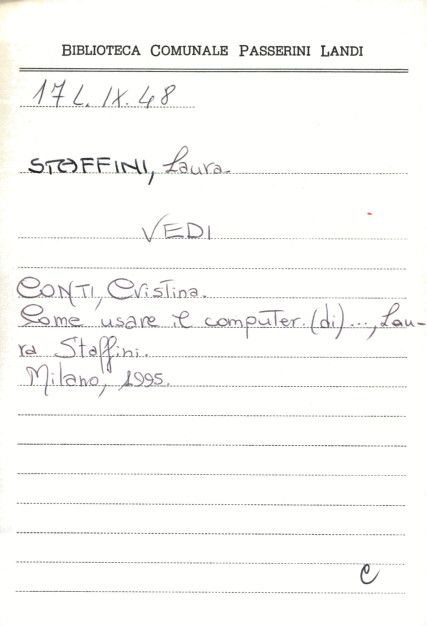 BIBLIOTECA COMUNALE PASSERINI LANDI
17 L. IX. 48
STAFFINI, Laura.
VEDI
CONTI, Cristina.
Come usare il computer. (di) ..., Lau-
ra Staffini.
Milano, 1995.
C